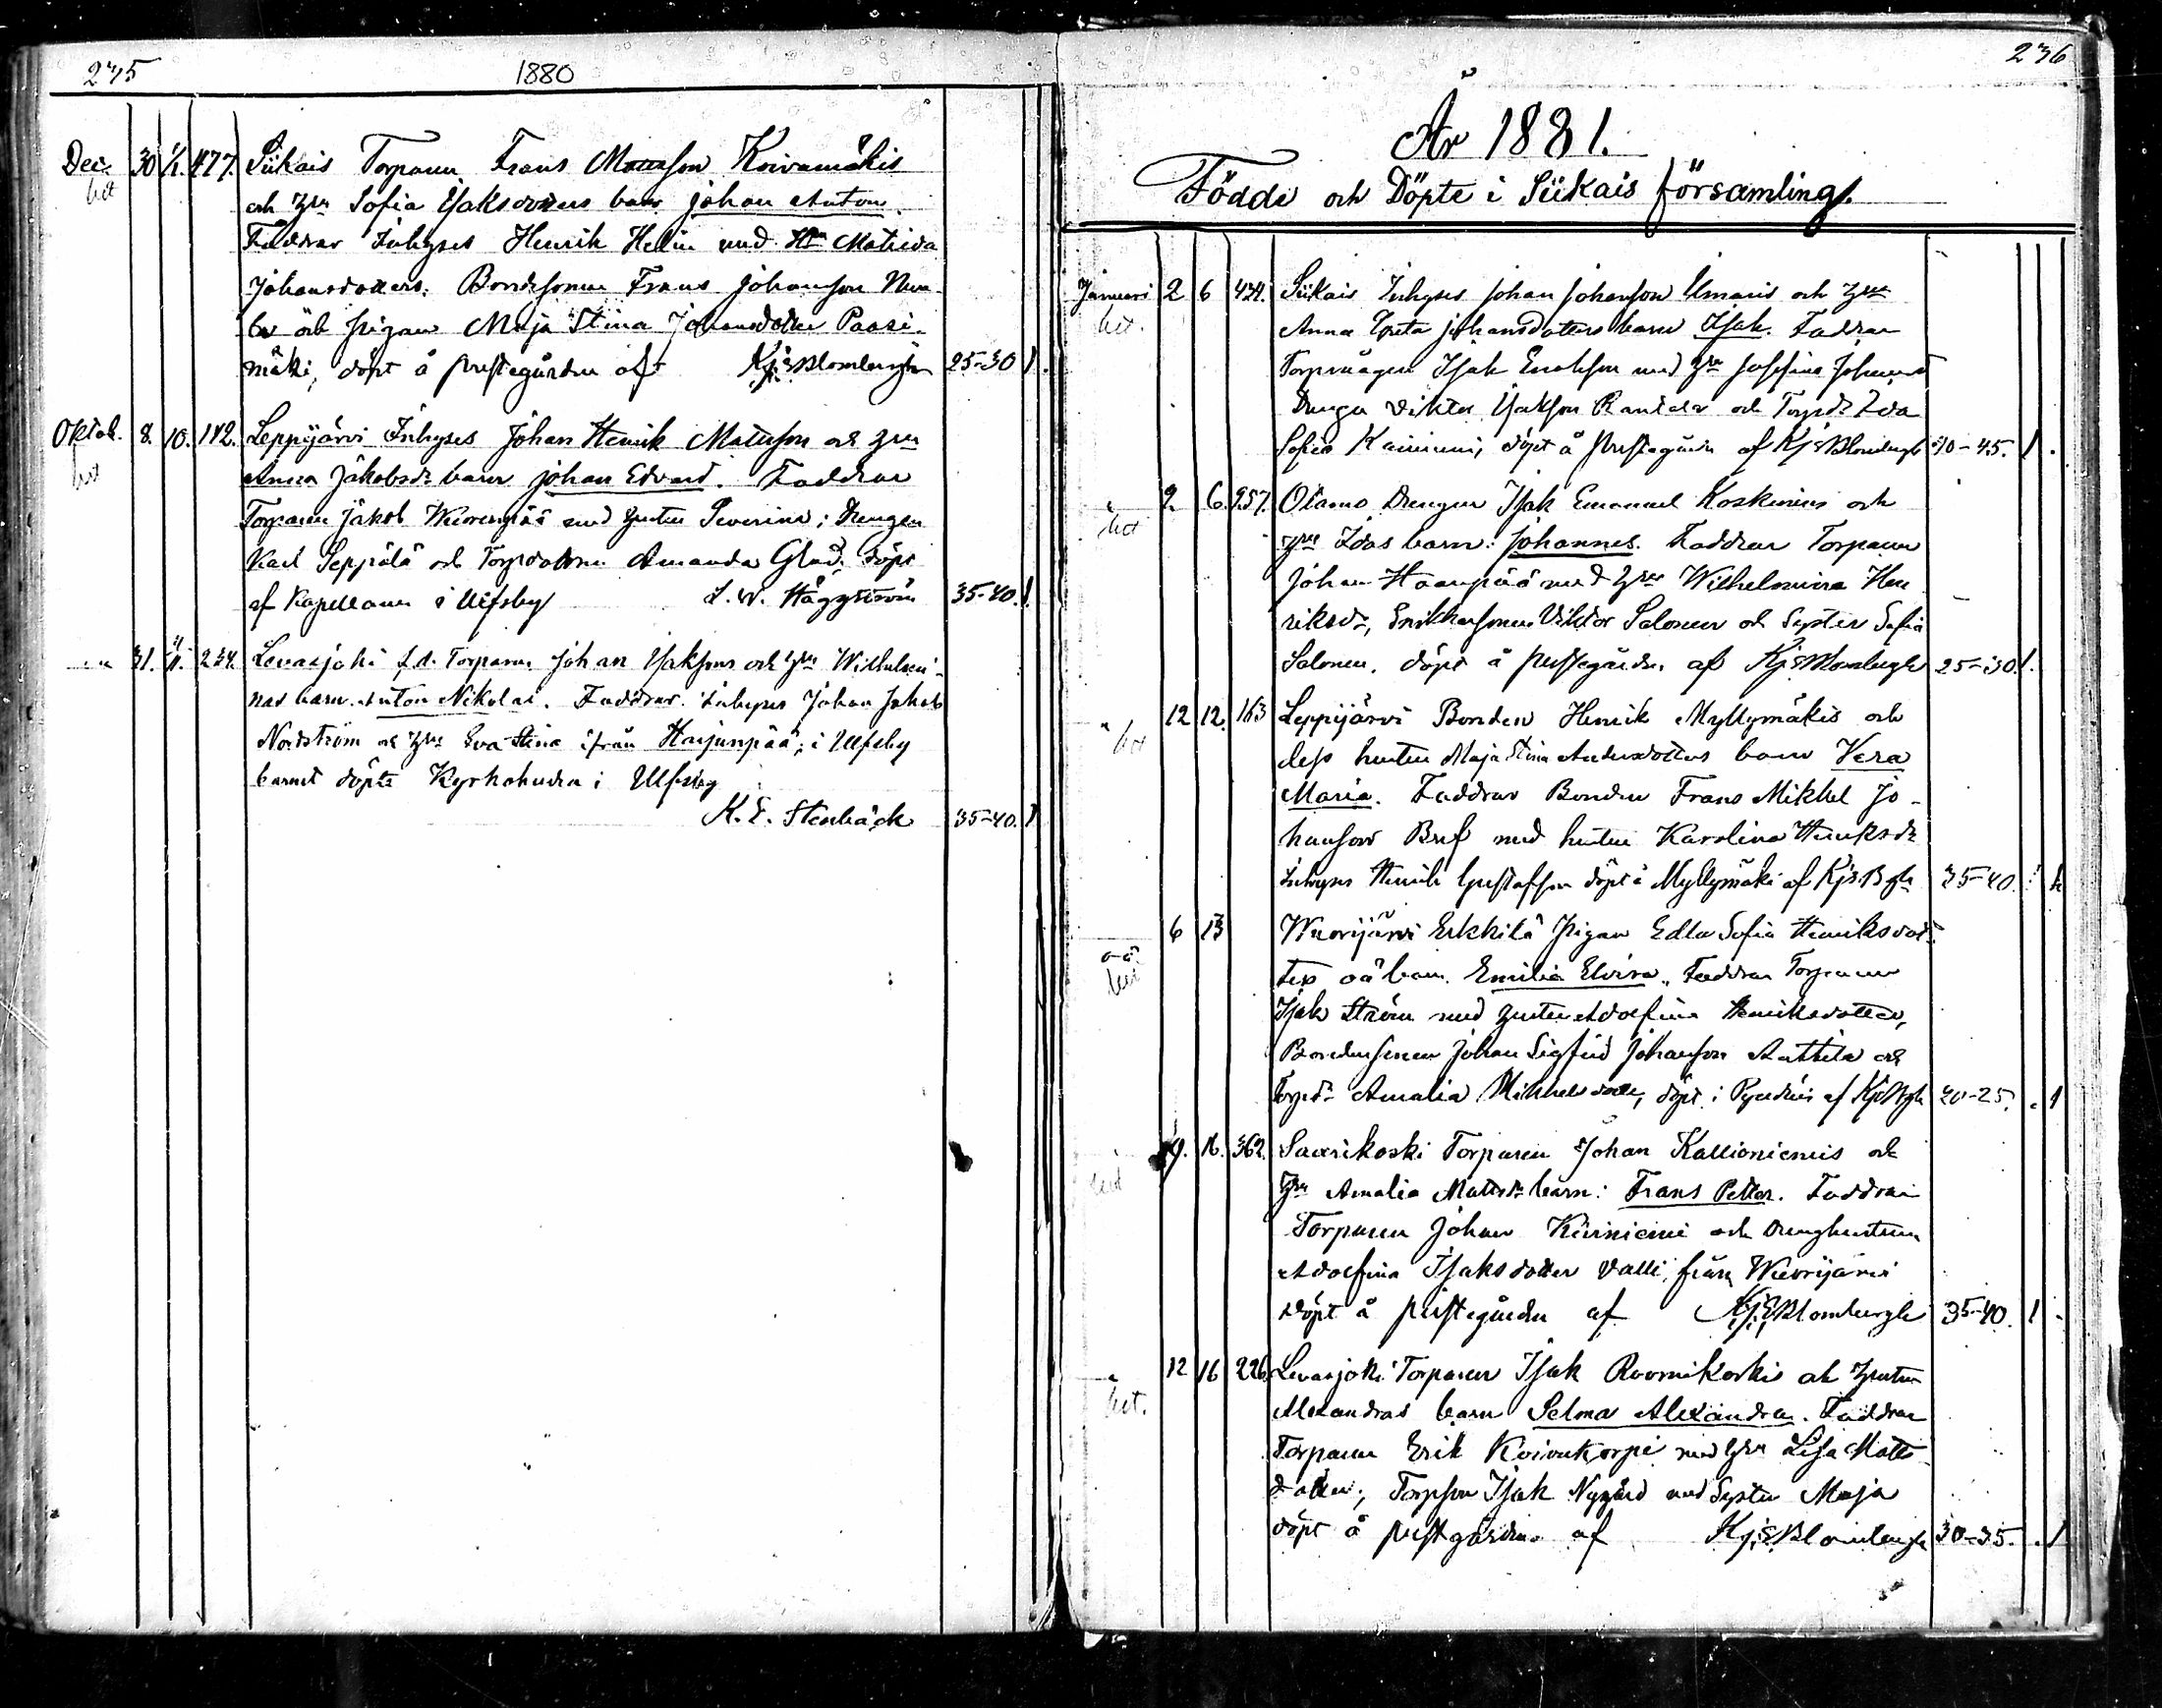 275
1880
Dec. 30 1/1. 477. Siikais Torparen Frans Mattsson Koivumäkis
och hu Sofia Isaksdotters barn Johan Anton.
Faddrar Inhyses Henrik Helin med Hu Matilda
Johansdotters. Bondesonen Frans Johansson
och pigan Maja Stina Johansdotter Paasi-
mäki, döpt å prestegården af KjEBlombergh 25-30 1.
Oktob. 8. 10. 112. Leppijärvi Inhyses Johan Henrik Matsson och hu
Anna Jakobsdr barn Johan Edvard. Faddrar
Torparen Jakob Wuorenpää med hustru Severina; Drengen
Karl Seppälä och Torpdottren Amanda Glad, döpt
af Kapellanen i Ulfsby L. W. Häggström 35-40. 1.
31. 11. 234. Leväsjoki f.d. Torparen Johan Isaksons och hu Wilhelmi-
nas barn Anton Nikolai. Faddrar Inhyses Johan Jakob
Nordström och hu Eva Stina ifrån Harjunpää i Ulfsby
barnet döpts Kyrkoherden i Ulfsby
K. E. Stenbäck 35-40. 1
236
År 1881.
Födde och Döpte i Siikais församling.
Januari 2 6 434. Siikais Inhyses Johan Johansson Umanis och hu
Anna Greta Johansdotters barn Isak. Faddrar
Torpmågen Isak Enoksson med hu Josefina Johansd
Dreng Viktor Isaksson Rantala och Torpdr Ida
Sofia Kaimuni, döpt å prestegården af KjEBlombergh 40-45. 1.
2 6. 257. Otamo Drengen Isak Emanuel Koskinens och
hu Idas barn: Johannes. Faddrar Torparen
Johan Haanpää med hu Wilhelmina Hen-
riksdr, Enkkasonen Viktor Salonen och Syster Sofia
Salonen. döpt å prestegården af KjEBlombergh 25-30. 1.
12 12. 163 Leppijärvi Bonden Henrik Myllymäkis och
dess hustru Maja Stina Andersdotters barn Vera
Maria. Faddrar Bonden Frans Mikkel Jo-
hansson Bref med hustru Karolina Henriksdr
Inhyses Henrik Gustafsson döpt i Myllymäki af KjEBgh 35-40.
6 13 Wuorijärvi Erkkilä Pigan Edla Sofia Henriksdot-
ters oä barn Emilia Elvira. Faddrar Torparen
Isak Ström med hustru Adolfina Henriksdotter,
Bondesonen Johan Sigfrid Johansson Anttila och
Torpdr Amalia Mikkelsdotter, döpt i af KjEBgh 20-25. . 1
9. 16. 362. Saarikoski Torparen Johan Kallioniemis och
hu Amalia Mattsdr barn: Frans Petter. Faddrar
Torparen Johan Kiviniemi och Drenghustrun
Adolfina Isaksdotter Valli från Wuorijärvi
döpt å prestegården af KjEBlombergh 35-40. 1 .
12 16 226 Leväsjoki Torparen Isak Roomikoskis och hustru
Alexandras barn Selma Alexandra. Faddrar
Torparen Erik Koivukorpi med hu Lisa Matts-
dotter; Torpson Isak Nygård med Syster Maja
döpt å prestgården af KjEBlombergh 30-35. . 1